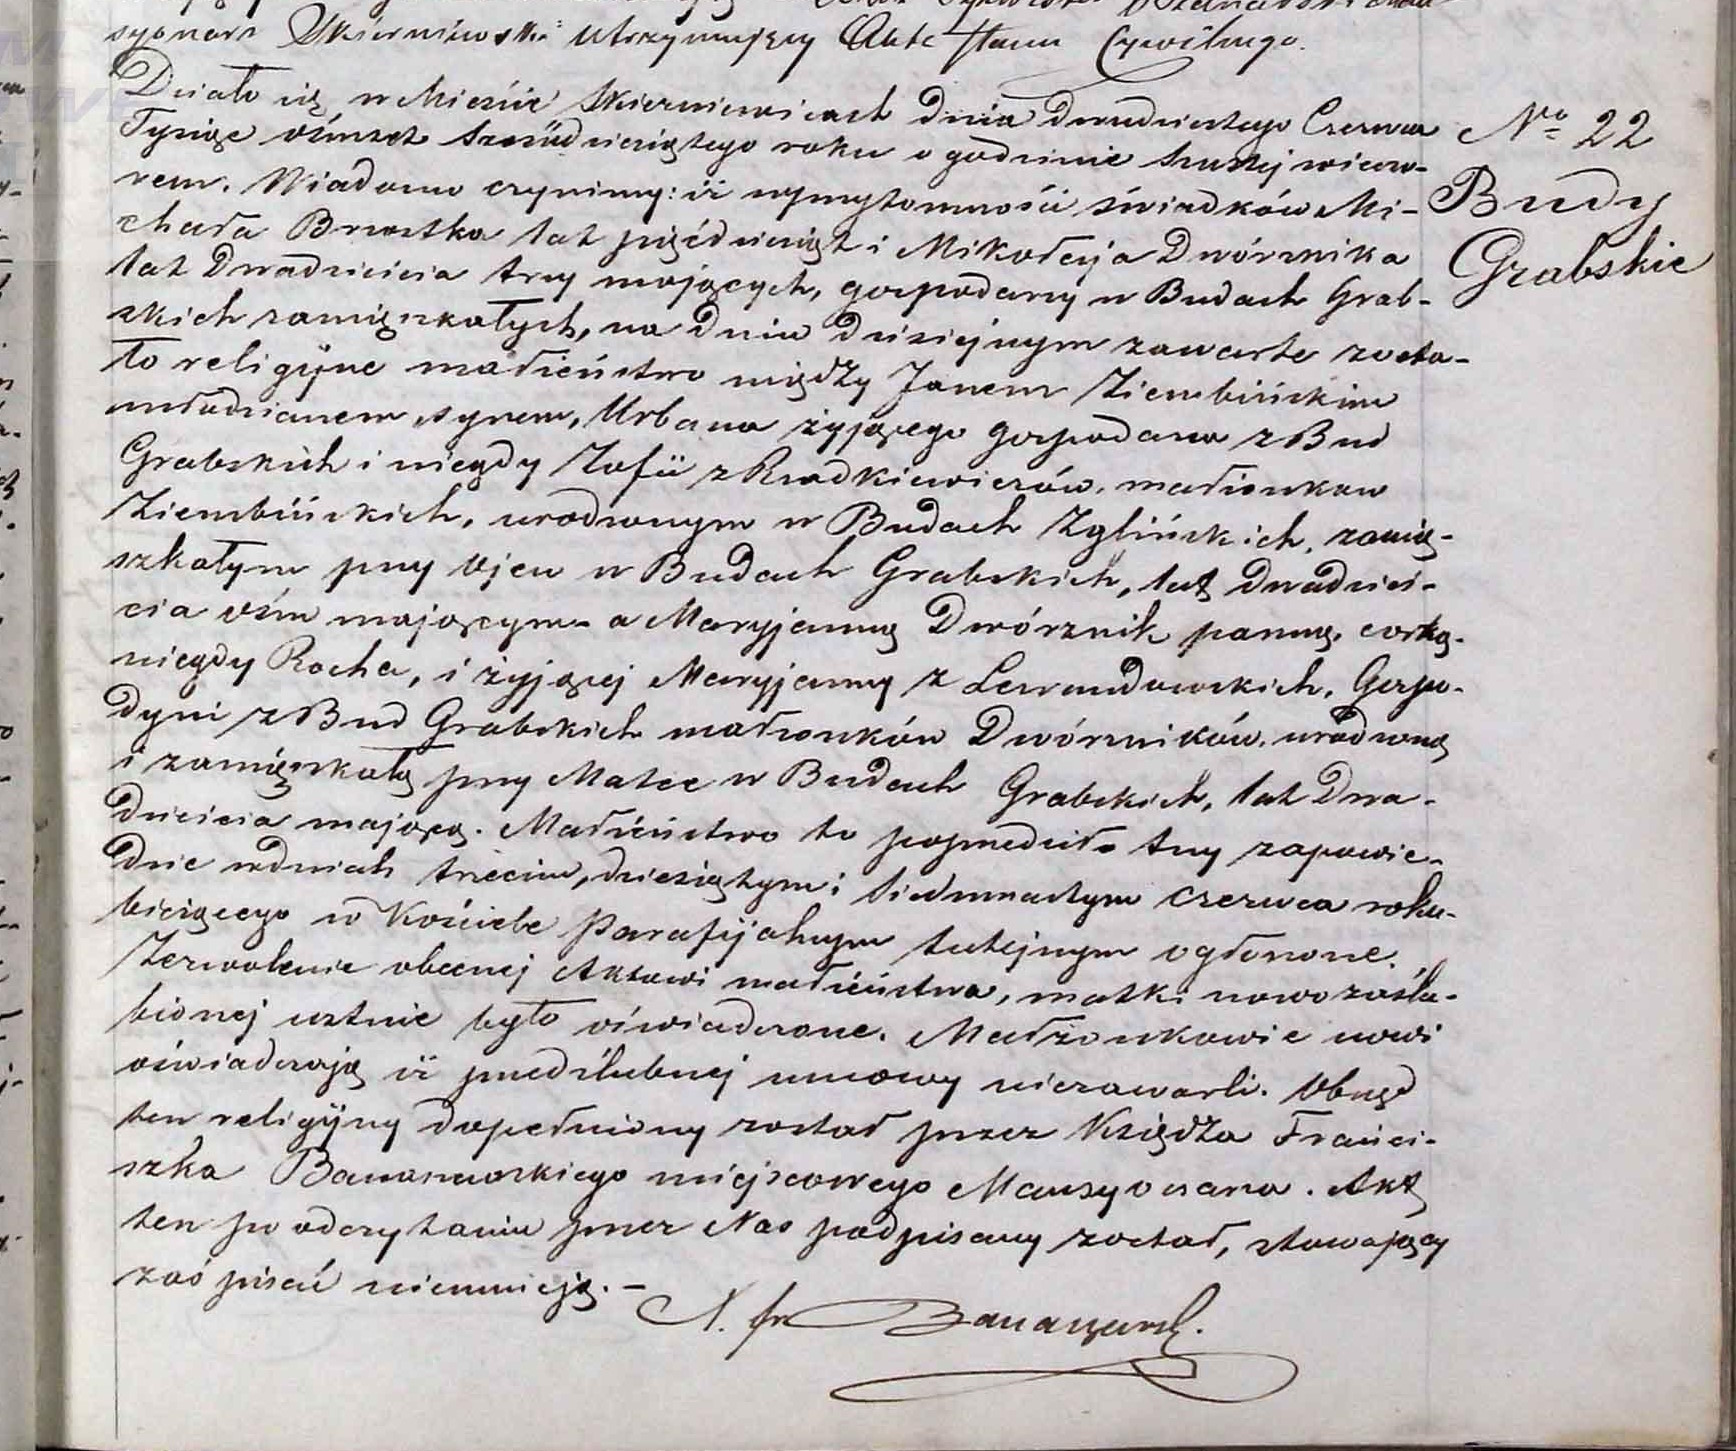 syonarz Skierniewski utrzymujący Akta Stanu Cywilnego.
Działo się w Mieście Skierniewicach dnia dwudziestego Czerwca
Tysiąc ośmset sześćdziesiątego roku o godzinie szustej wieczo-
rem. Wiadomo czynimy: iż w przytomności świadków Mi-
chała Brustka lat pięćdziesiąt i Mikołaja Dwórznika
lat Dwadzieścia trzy mających, gospodarzy w Budach Grab-
skich zamięszkałych, na dniu dzisiejszym zawarte zosta-
ło religijne małżeństwo między Janem Ziembińskim
młodzianem, synem, Urbana żyjącego gospodarza z Bud
Grabskich i niegdy Zofii z Rudkiewiczów, małżonków
Ziembińskich, urodzonym w Budach Zglińskich, zamię-
szkałym przy Ojcu w Budach Grabskich, lat dwadzieś-
cia ośm mającym – a Maryjanną Dwórznik panną, córką
niegdy Rocha, i żyjącej Maryjanny z Lewandowskich, Gospo-
dyni z Bud Grabskich małżonków Dwórzników, urodzoną
i zamięszkałą przy Matce w Budach Grabskich, lat Dwa-
dzieścia mającą. Małżeństwo to poprzedziło trzy zapowie-
dzie w dniach trzecim, dziesiątym i siedmnastym Czerwca roku
bieżącego w Kościele Parafijalnym tutejszym ogłoszone.
Zezwolenie obecnej Aktowi małżeństwa, matki nowo zaślu-
bionej ustnie było oświadczone. Małżonkowie nowi
oświadczają iż przedślubnej umowy niezawarli. Obrząd
ten religijny dopełniony został przez Księdza Franci-
szka Banaszewskiego miejscowego Mansyonarza. Akt
ten po odczytaniu przez Nas podpisany został, stawający
zaś pisać nieumieją. –
X. Fr Banaszewski.
No 22
Budy
Grabskie